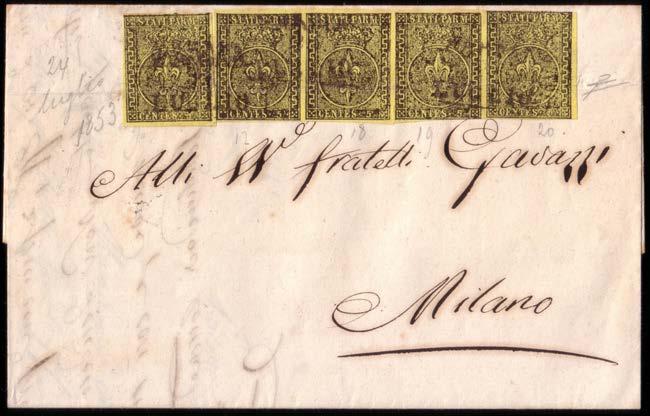 STATI PARM. STATI PARM. STATI PARM. STATI PARM. STATI PARM.
CENTES. 5. CENTES. 5. CENTES. 5. CENTES. 5. CENTES. 5.
24
luglio
1853
18 19 20
Alli W. fratelli Gavazzi
Milano